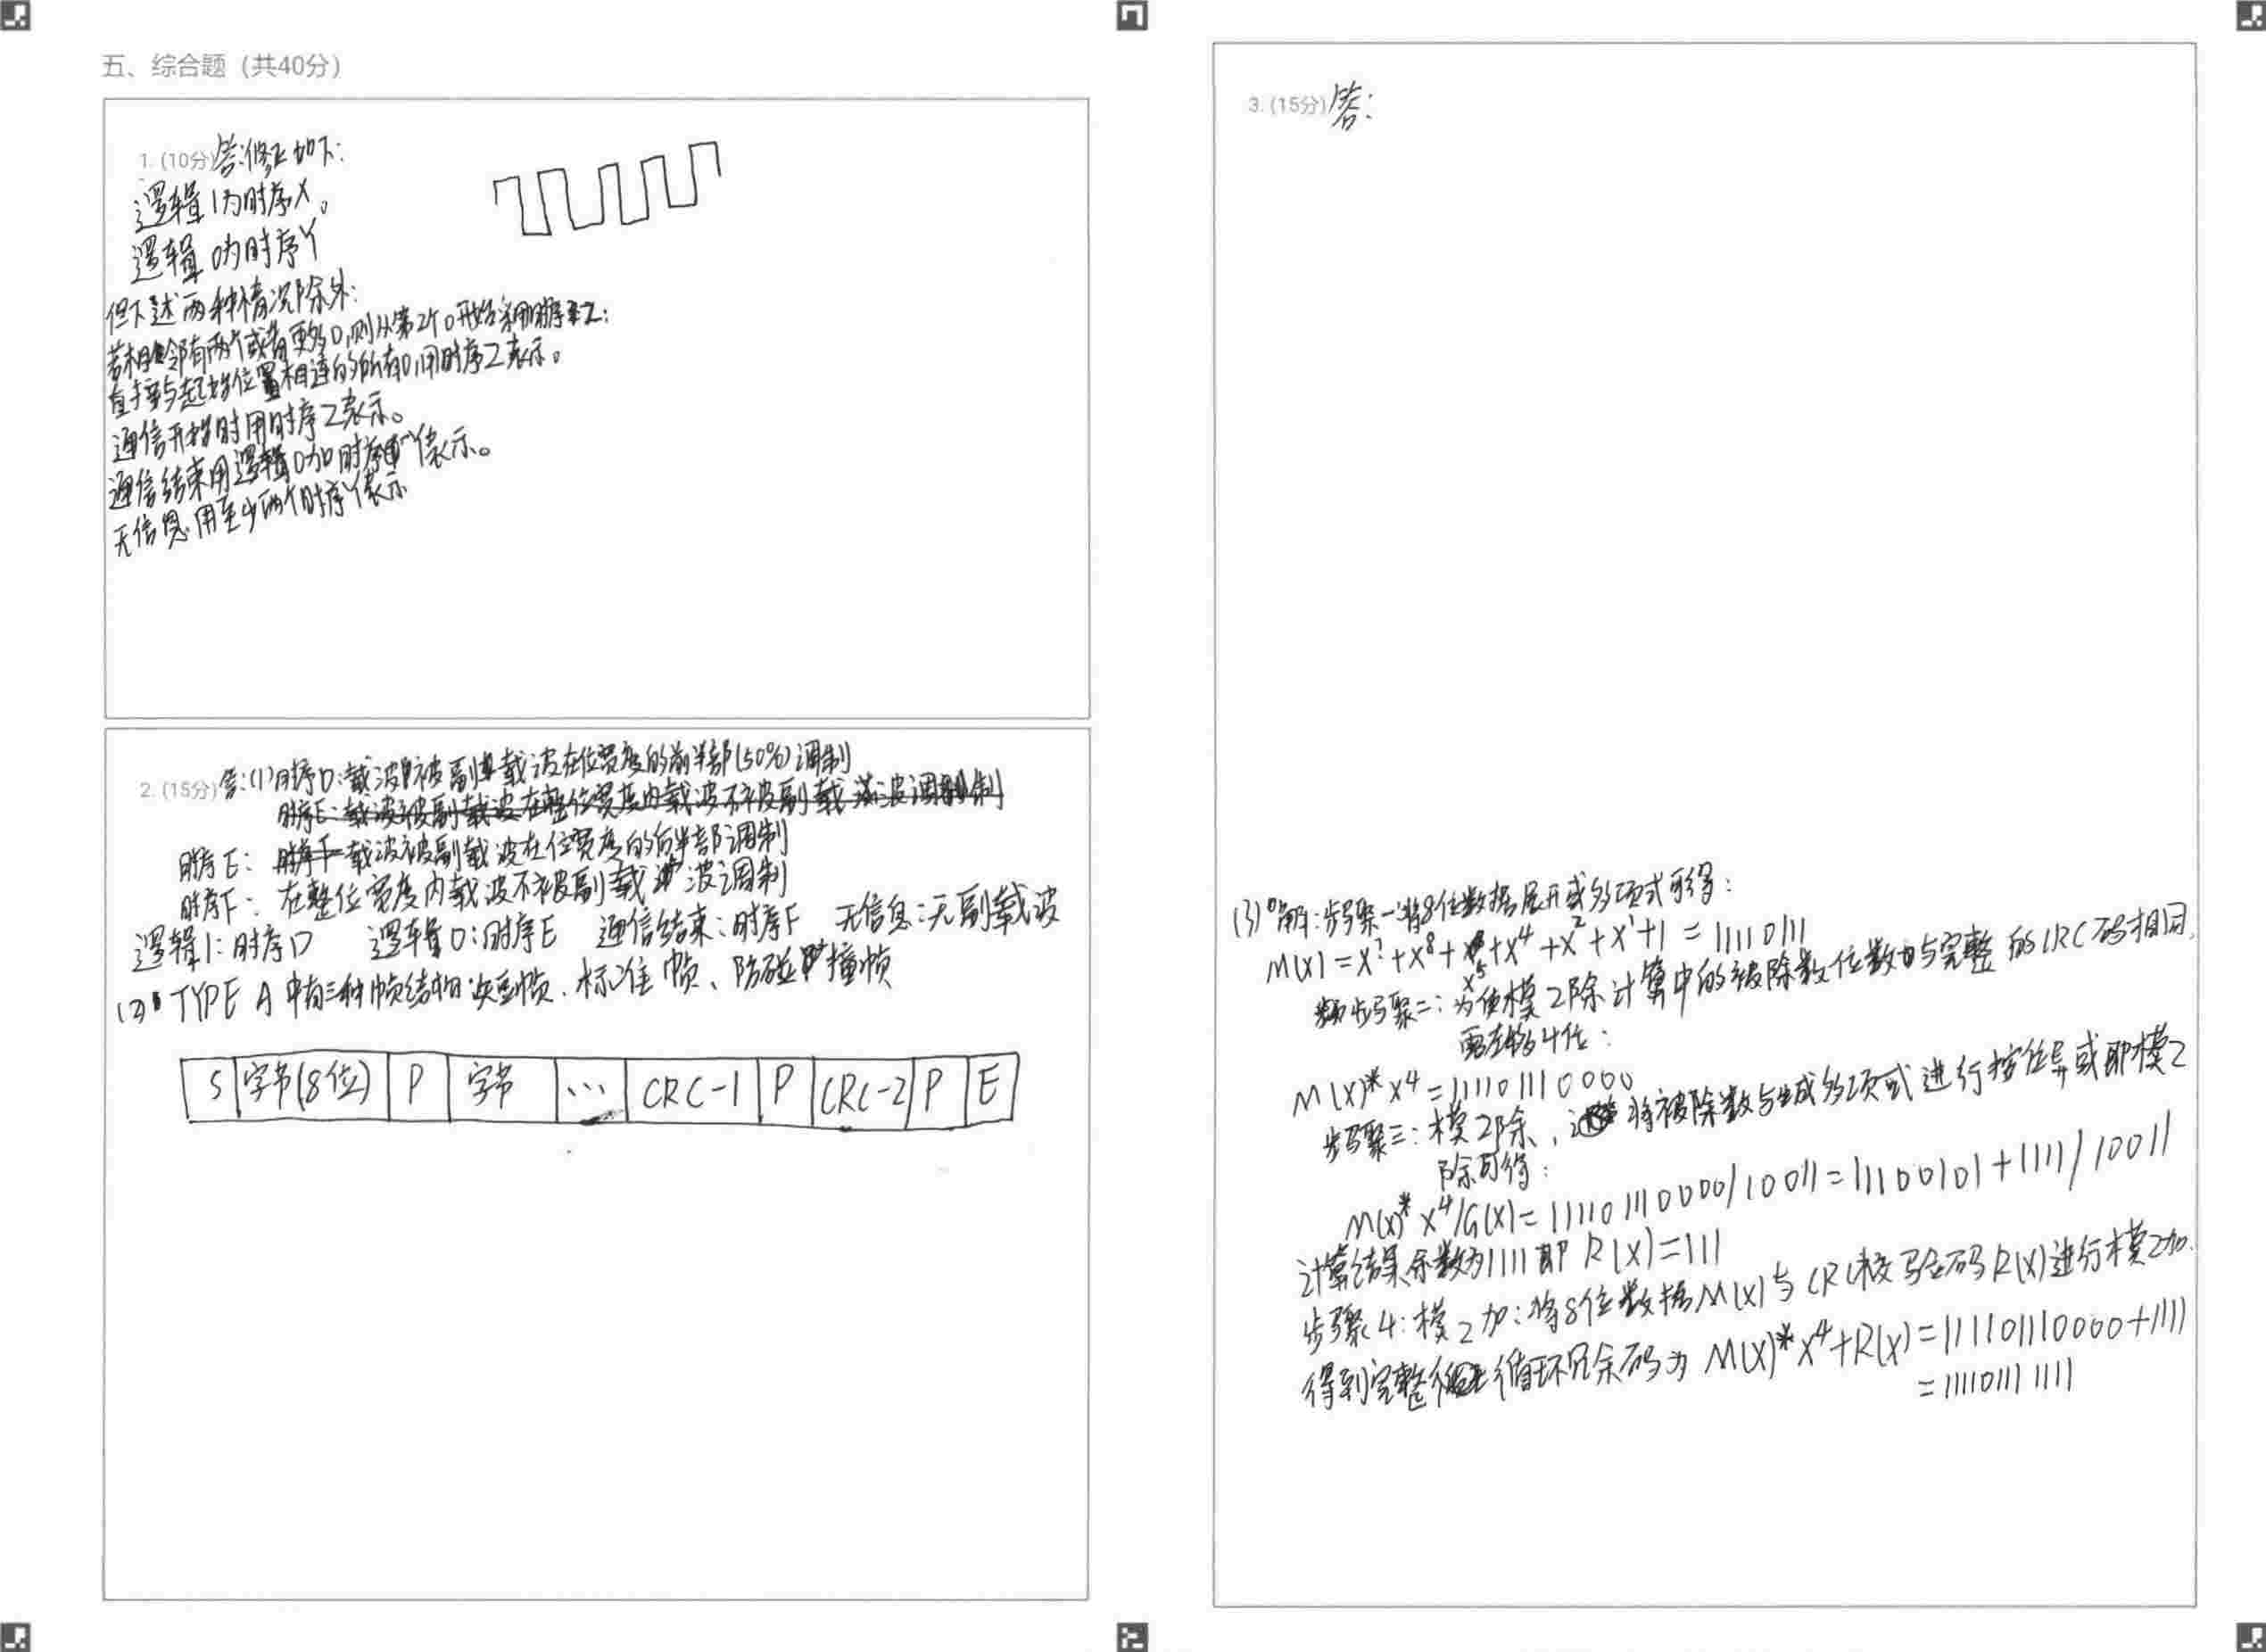 五、综合题（共40分）
1. (10分) 答:修正如下:
逻辑1为时序X。
逻辑0为时序Y
但下述两种情况除外:
若相邻有两个或者更多0,则从第2个0开始采用时序Z:
直接与起始位置相连的所有0,用时序Z表示。
通信开始时用时序Z表示。
通信结束用逻辑0加时序Y表示。
无信息:用至少两个时序Y表示
2. (15分) 答:(1)时序D:载波被副载波在位宽度的前半部(50%)调制
时序E:载波被副载波在整位宽度内载波不被副载波调制
时序E: 时序F 载波被副载波在位宽度的后半部调制
时序F: 在整位宽度内载波不被副载波调制
逻辑1:时序D 逻辑0:时序E 通信结束:时序F 无信息:无副载波
(2) TYPE A 中有三种帧结构:短帧、标准帧、防碰撞帧
S 字节(8位) P 字节 ... CRC-1 P CRC-2 P E
3. (15分) 答:
(3) 解:步骤一:将8位数据展开成多项式可得:
M(x)=x⁷+x⁸+x⁵+x⁴+x²+x¹+1=11110111
步骤二:为使模2除计算中的被除数位数与完整的CRC码相同,
需左移4位:
M(x)*x⁴=111101110000
步骤三:模2除, 将被除数与生成多项式进行按位异或即模2
除可得:
M(x)*x⁴/G(x)=111101110000/10011=11100101+1111/10011
计算结果余数为1111即R(x)=111
步骤4:模2加:将8位数据M(x)与CRC校验码R(x)进行模2加.
得到完整循环冗余码为M(x)*x⁴+R(x)=111101110000+1111
=11110111 1111